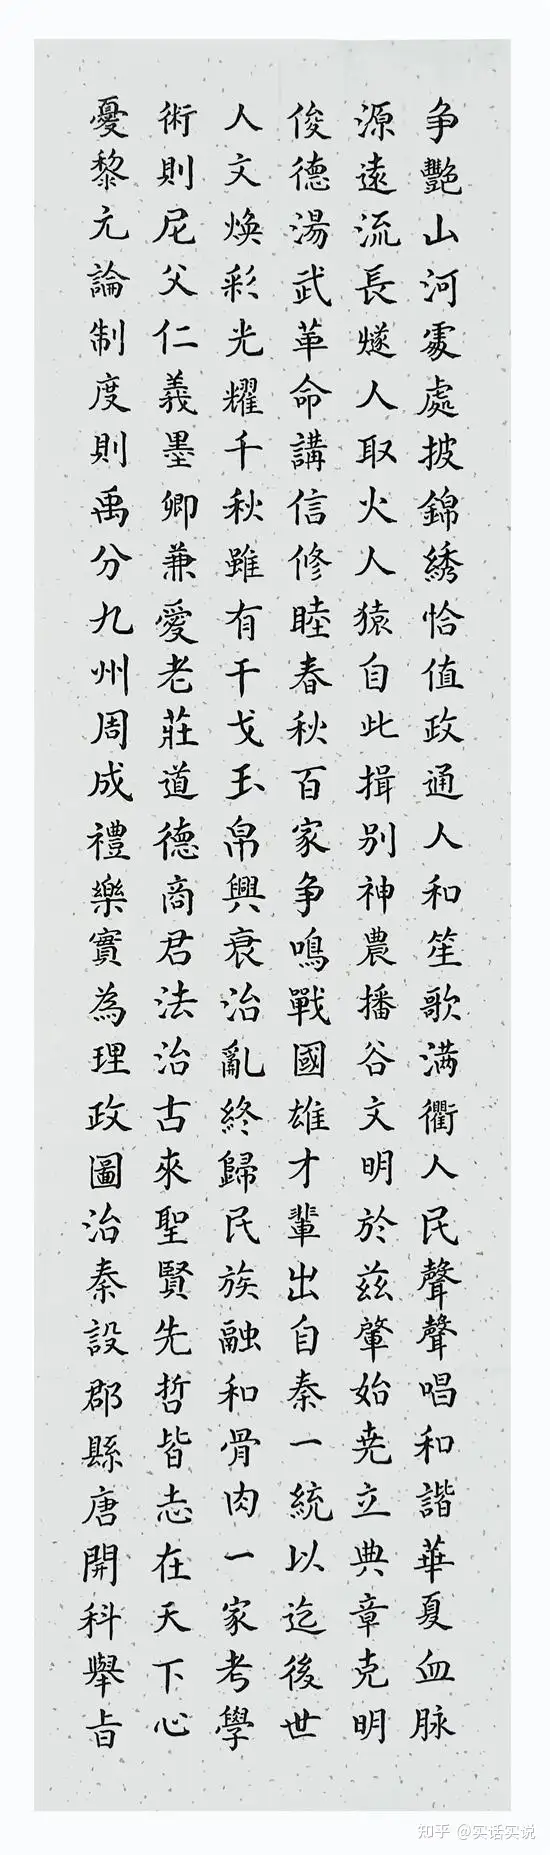 争艷山河處處披錦綉恰值政通人和笙歌满衢人民聲聲唱和諧華夏血脉
源遠流長燧人取火人猿自此揖别神農播谷文明於兹肇始尭立典章克明
俊德湯武革命講信修睦春秋百家争鳴戰國雄才輩出自秦一統以迄後世
人文焕彩光耀千秋雖有干戈玉帛興衰治亂終歸民族融和骨肉一家考學
術則尼父仁義墨卿兼愛老莊道德商君法治古來聖賢先哲皆志在天下心
憂黎元論制度則禹分九州周成禮樂實為理政圖治秦設郡縣唐開科舉旨
知乎 @实话实说